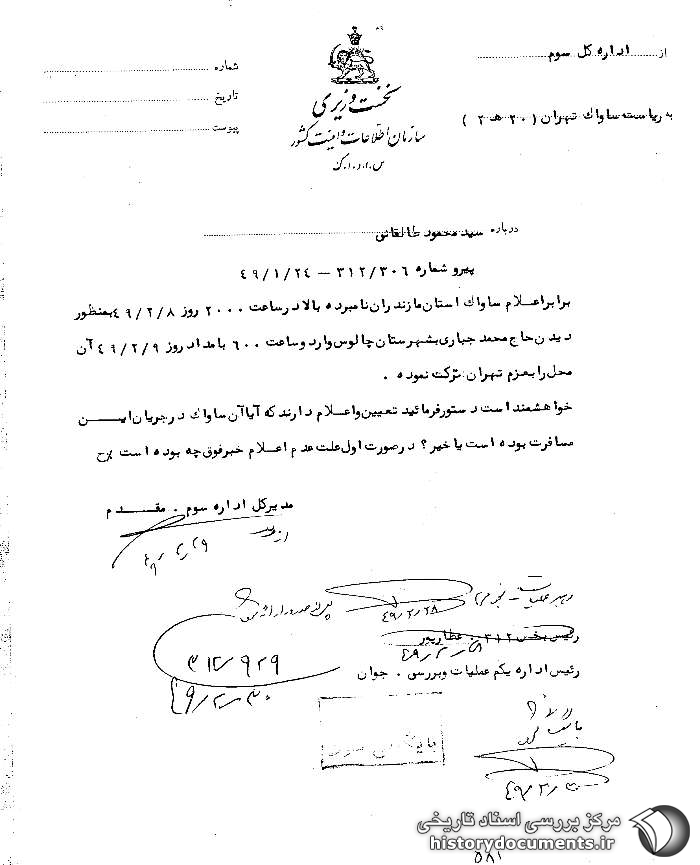 ۸۹
از اداره کل سوم
به ریاست ساواك تهران ( ۲۰ هـ ۲ )
نخست وزیری
سازمان اطلاعات و امنیت کشور
س.ا.و.ا.ک
شماره
تاریخ
پیوست
درباره سید محمود طالقانی
پیرو شماره ۳۱۲/۳۰۶ – ۴۹/۱/۲۴
برابر اعلام ساواك استان مازندران نامبرده بالا در ساعت ۲۰۰۰ روز ۴۹/۲/۸ بمنظور
دیدن حاج محمد جباری بشهرستان چالوس وارد و ساعت ۶۰۰ بامداد روز ۴۹/۲/۹ آن
محل را بعزم تهران ترکت نموده .
خواهشمند است دستور فرمائید تعیین و اعلام دارند که آیا آن ساواك در جریان ایــن
مسافرت بوده است یا خیر ؟ در صورت اول علت عدم اعلام خبر فوق چه بوده است
مدیر کل اداره سوم . مقـــدم
از
۴۹/۲/۲۹
رهبر عملیات
۴۹/۲/۲۸
پس از صدور ارائه شود
رئیس بخش ۳۱۲ . عطارپور
رئیس اداره یکم عملیات و بررسی . جوان
۳۱۲/۹۲۹
۴۹/۲/۳۰
بایگانی شود
مرکز بررسی اسناد تاریخی
historydocuments.ir
۵۸۱